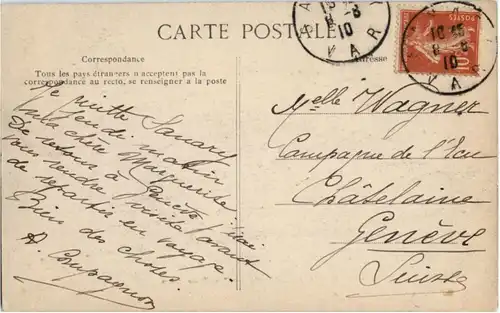 CARTE POSTALE
Correspondance
Tous les pays étrangers n acceptent pas la
correspondance au recto, se renseigner a la poste
Adresse
Je quitte Sanary
jeudi matin
ma chère Marguerite.
De retour à j'irai
vous rendre visite avant
de repartir en voyage.
Bien des choses.
A. Compagnon
Melle Wagner
Campagne de l'Ecu
Châtelaine
Genève
Suisse
POSTES
10
VAR
8 8
10
VAR